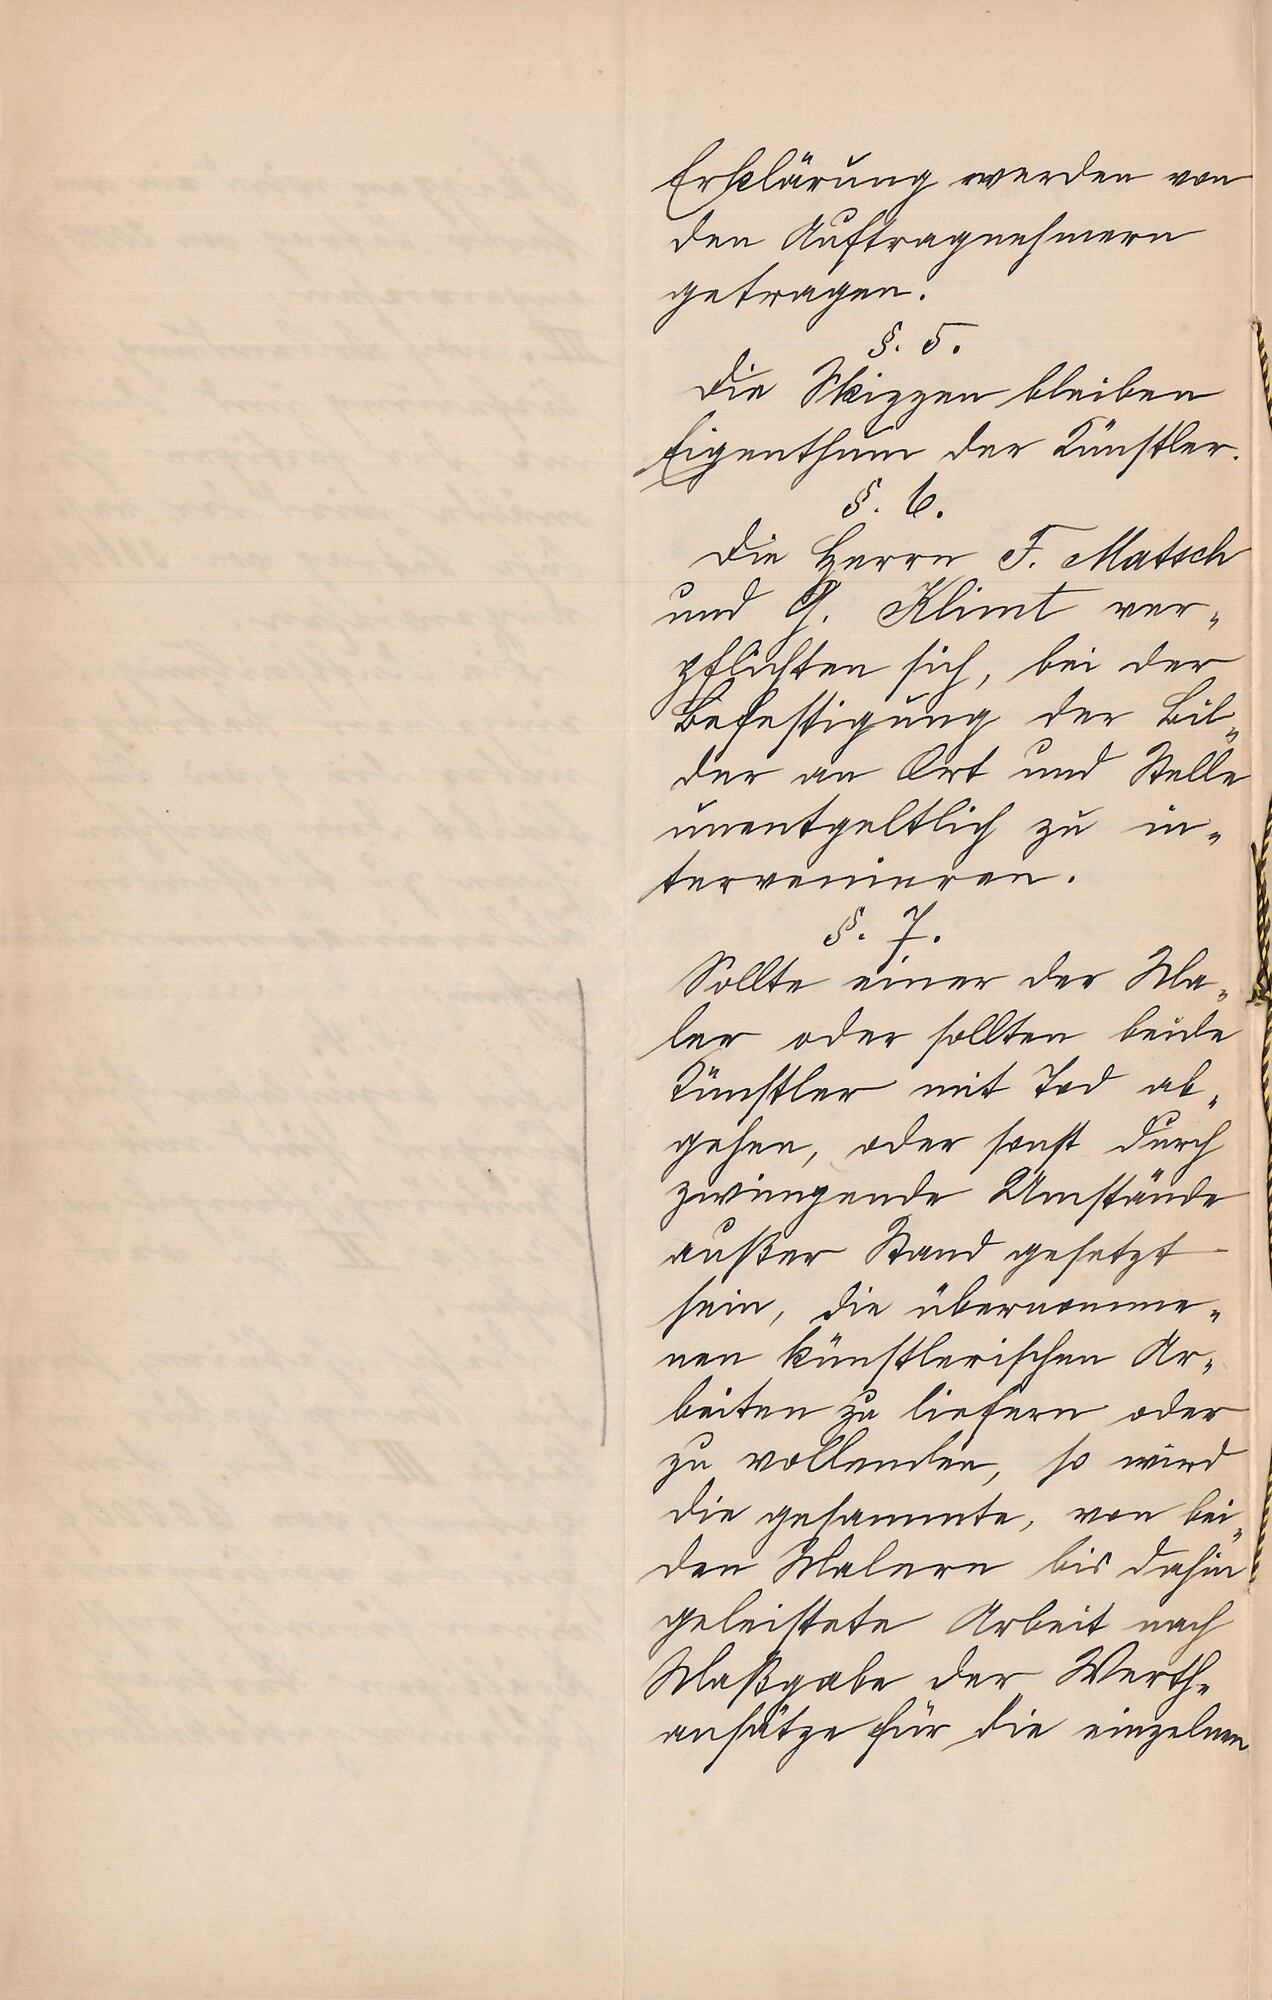 Erklärung werden von
den Auftragnehmern
getragen.
§. 5.
Die Skizzen bleiben
Eigenthum der Künstler.
§. 6.
Die Herrn F. Matsch
und G. Klimt ver-
pflichten sich, bei der
Befestigung der Bil-
der an Ort und Stelle
unentgeltlich zu in-
tervenieren.
§. 7.
Sollte einer der Ma-
ler oder sollten beide
Künstler mit Tod ab-
gehen, oder sonst durch
zwingende Umstände
außer Stand gesetzt
sein, die übernomme-
nen künstlerischen Ar-
beiten zu liefern oder
zu vollenden, so wird
die gesammte, von bei-
den Malern bis dahin
geleistete Arbeit nach
Maßgabe der Werth-
ansätze für die einzelnen